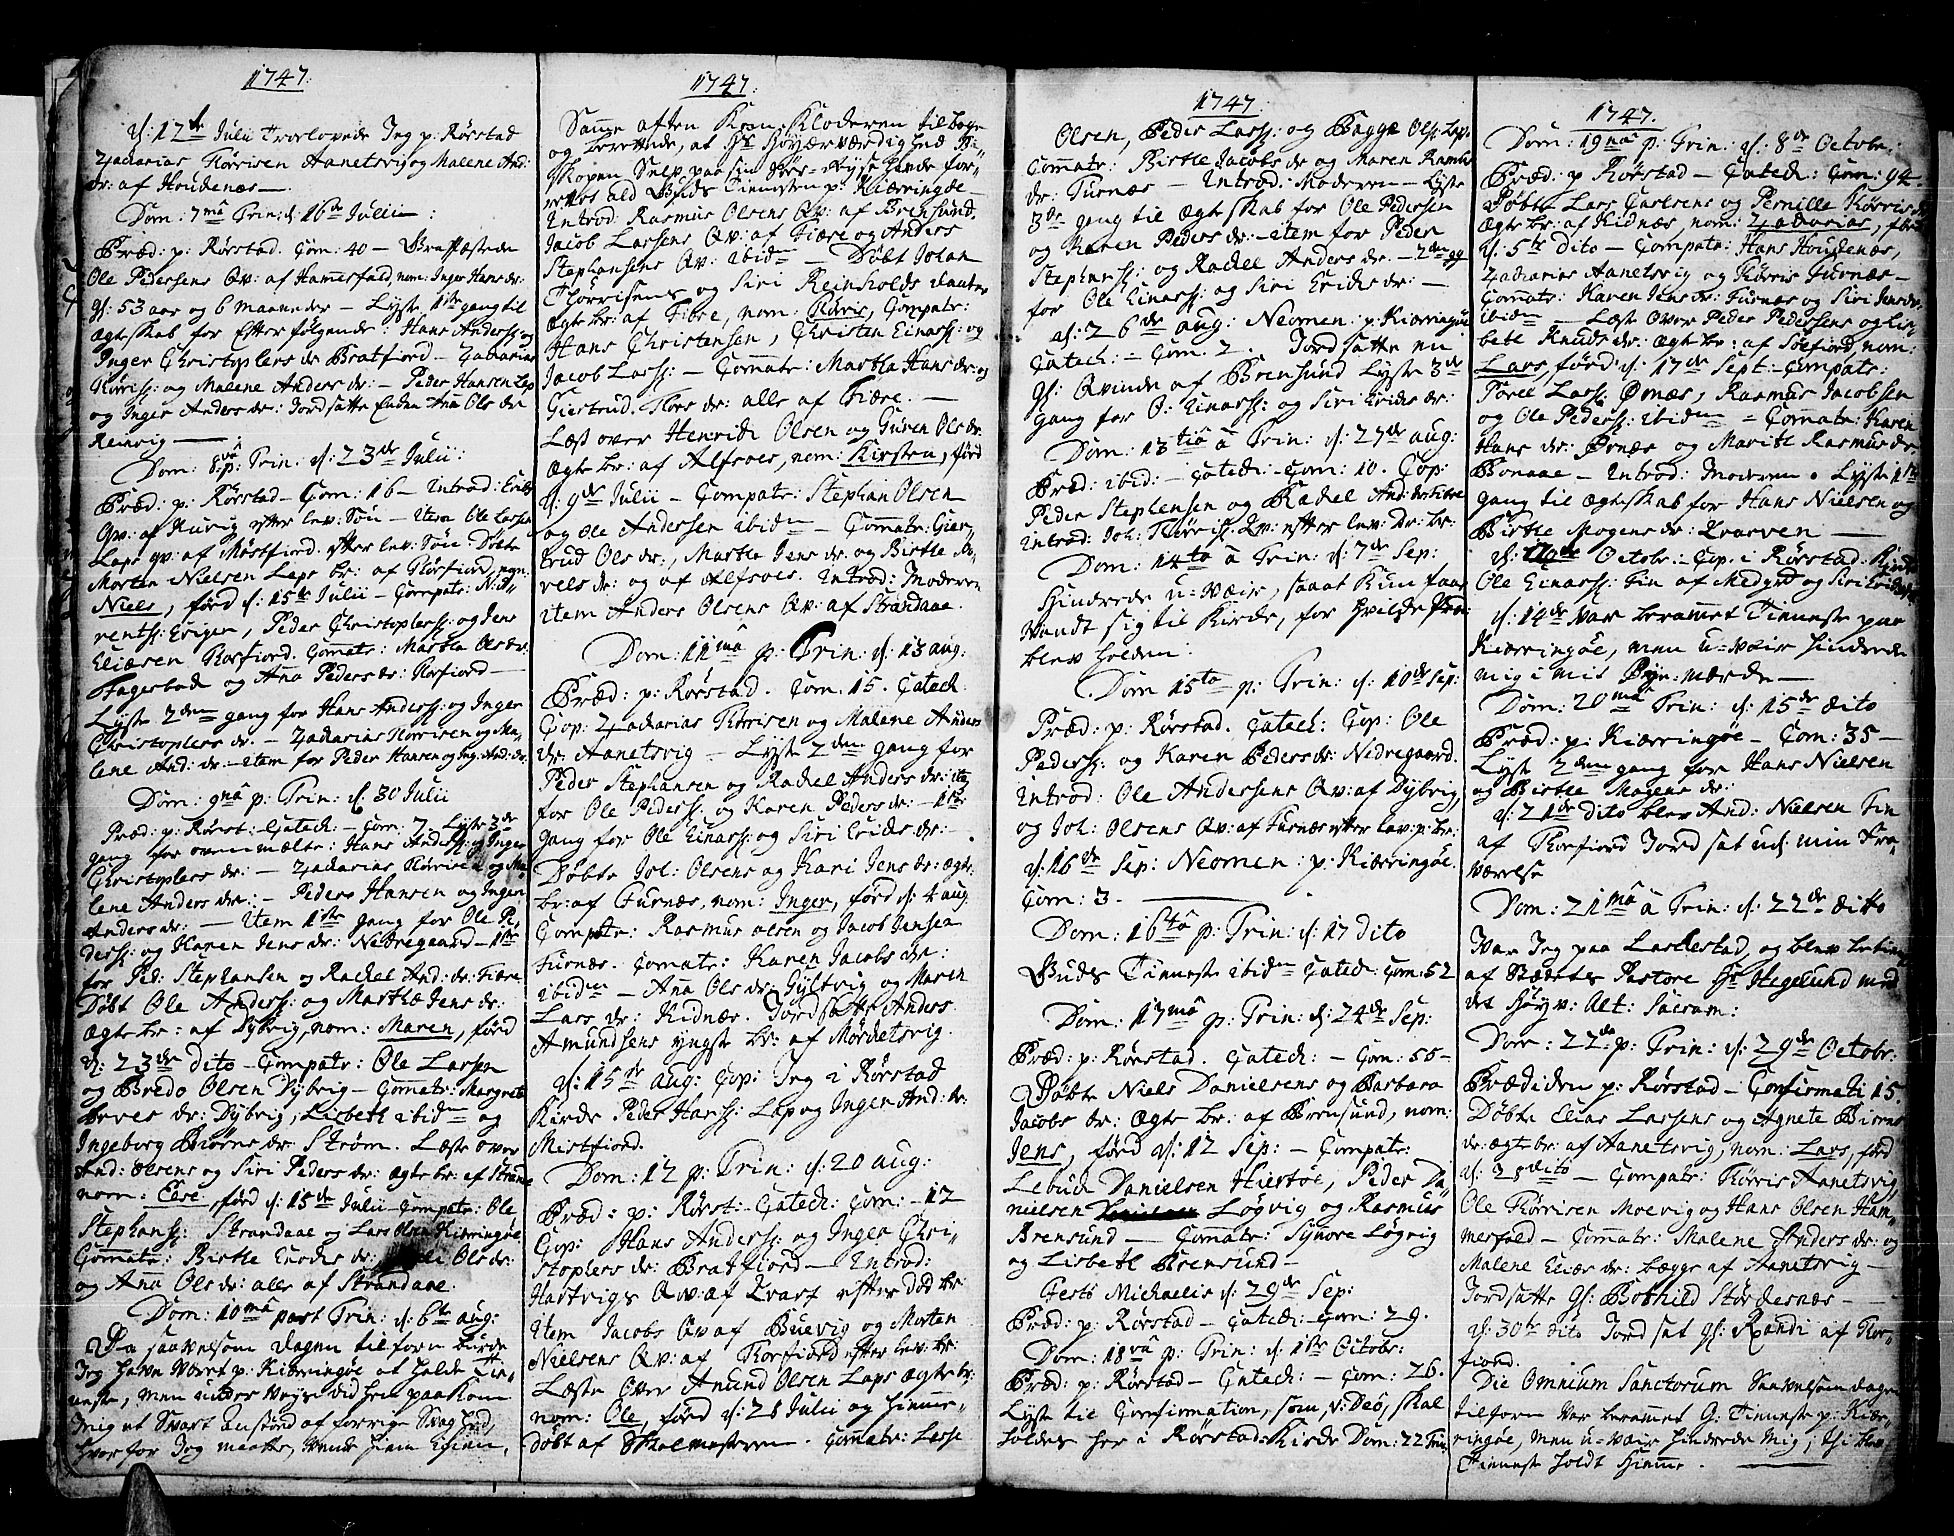 1747.
d: 12te Julii Troelovede Jeg p: Rørstad
Zacharias Tørrisen Aanetsvig og Malene And:
dr: af Houdenæs —
Dom: 7mâ Trin: d: 16te Julii:
Præd: p: Rørstad. Com: 40 —
Ole Pedersens Qv: af Hamerfald, nom: Inger Hans dr:
Gl: 53 aar og 6 maaneder — Lyste 1ste gang til
ægteskab for Efterfølgende: Hans Anderss: og
Inger Christophers dr Bratfiord — Zacharias
Tørriss: og Malene Anders dr: — Peder Hansen Lap
og Inger Anders dr: Jordsatte Enken Ana Ols dr
Reinvig —
Dom: 8vâ p: Trin: d: 23de Julii:
Præd: p: Rørstad — Com: 16 — Introd: Erichs
Qv: af efter lev: Søn — Item Ole Larsen
Laps qv: af Møstfiord efter lev: Søn. Døbte
Morten Nielsen Laps br: af Torfiord, nom:
Niels, førd d: 15de Julii — Compatr: Nil
Erigen, Peder Christophers: og Jens
Eliæsen Torfiord. Comatr: Martha Ols dr:
Fagerbad og Ana Peders dr: Torfiord —
Lyste 2den gang for Hans Anderss: og Inger
Christophers dr: — Zacharias Tørrisen og Ma-
lene And: dr: — item for Peder Hansen og Ing: And: dr:
Dom: 9nâ p: Trin: d: 30 Julii
Præd: p: Rørst: — Catech: — Com: 7. Lyste 3de
gang for ovenmælte: Hans Anderss: og Inger
Christophers dr: — Zacharias Tørrisen og Ma-
lene Anders dr: — Peder Hansen og Inger
Anders dr: — Item 1ste gang for Ole Pe-
derss: og Karen Jens dr: Nedregaard — 1ste
for Ped: Stephansen og Rachel And: dr: Fiære
Døbt Ole Anderss: og Marthæ Jens dr:
ægte br: af Dybvig, nom: Maren, førd
d: 23de dito — Compatr: Ole Larsen
og Bredo Olsen Dybvig — Comatr: Margrete
dr: Dybvig, Lisbeth ibidm og
Ingeborg Biørns dr: Strøm. Læste over
And: Olsens og Siri Peders dr: ægte br: af Strand
nom: Else, førd d: 15de Julii Compatr: Ole
Stephanss: Strandaae og Lars Olsen Kierringøe
Comatr: Birthe Ols dr:
og Ana Ols dr: alle af Strandaae.
Dom: 10mâ post Trin: d: 6te aug:
Da saavelsom dagen tilforn burde
Jeg have været p: Kierringøe at holde Tie-
neste, men
mig et Svart Anstød af forrige Svaghed,
hvorfor Jeg maatte, vende hiem igien,
1747.
Samme aften Kom Kloderen tilbage
og berettede, at Hr: Høyærværdighed Bi-
skopen Selv paa sin
rettet ald Guds Tienesten p: Kierringøe —
Introd: Rasmus Olsens Qv: af Brensund.
Jacob Larsens Qv: af Fiære og Anders
Stephansens Qv: ibidm — Døbt Johan
Thorrisens og Siri Reinholds daater
ægte br: af Fibre, nom: Compatr:
Hans Christensen, Christen Einarss: og
Jacob Larss: — Comatr: Martha Hans dr: og
Giertrud Thors dr: alle af Fiære. —
Læst over Henrich Olsen og Guren Ols dr:
ægte br: af Alfsoes, nom: Kirsten, førd
d: 9de Julii — Compatr: Stephan Olsen
og Ole Andersen ibidm — Comatr: Gier-
trud Ols dr:, Martha Jens dr: og Birthe Po-
vels dr: og af Alfsoes. Introd: Moderen
item Anders Olsens Qv: af Strandaae.
Dom: 11mâ p: Trin: d: 13 aug:
Præd: p: Rørstad. Com: 15. Catech:
Cop: Zacharias Tørrisen og Malene Anders
dr: Aanetsvig — Lyste 2den gang for
Peder Stephansen og Rachel Anders dr: item
for Ole Pederss: og Karen Peders dr: — 1ste
gang for Ole Einarss: og Siri Erichs dr: —
Døbte Joh: Olsens og Kari Jens dr: ægte
br: af Furnæs, nom: Inger, førd d: 4 aug.
Compatr: Rasmus Olsen og Jacob Jensen
Furnæs. Comatr: Karen Jacobs dr:
ibidm — Ana Ols dr: Gyltvig og Maren
Lars dr: Kidnæs. Jordsatte Anders
Amundsens yngste br: af Mørchetsvig
d: 15de aug: Cop: Jeg i Rørstad
Kirke Peder Hanss: Lap og Inger And: dr:
Mistfiord.
Dom: 12 p: Trin: d: 20 aug:
Præd: p: Rørst: Catech: Com: — 12
Cop: Hans Anderss: og Inger Chri-
stophers dr: Bratfiord — Introd:
Hartvigs Qv: af Kvarf efter død br:
Item Jacobs Qv af Buevig og Morten
Nielsens Qv: af Torfiord efter lev: br:
Læste over Amund Olsen Laps ægte br:
nom: Ole, førd d: 28 Julii og hieme-
døbt af Skolemesteren. Comatr: Lasse
1747.
Olsen, Peder Larss: og Bagge Ols: Lap.
Comatr: Birthe Jacobs dr og Maren
dr: Furnæs — Introd: Moderen — Lyste
3de gang til Ægteskab for Ole Pedersen
og Karen Peders dr: — item for Peder
Stephanss: og Rachel Anders dr: — 2den og
for Ole Einarss: og Siri Erichs dr: —
d: 26de aug: Neomen: p: Kierringøe
Catech: — Com: 2. Jordsatte en
Gl: Qvinde af Brensund Lyste 3de
gang for O: Einarss: og Siri Erichs dr:
Dom: 13tiâ â Trin: d: 27de aug:
Præd: ibid: — Catech: — Com: 10. Cop:
Peder Stephensen og Rachel And: dr: Fibre
Introd: Joh: Thøriss: Qv: efter lev: dr: br:
Dom: 14tâ â Trin: d: 7de Sep:
Hindrede u-væir, saaat Kun faae
vandt sig til Kirke, for hvilcke Præ:
blev holden:
Dom 15tâ p: Trin: d: 10de Sep:
Præd: p: Rørstad. Catech: Cop: Ole
Pederss: og Karen Peders dr: Nedregaard.
Introd: Ole Andersens Qv: af Dybvig,
og Joh: Olsens Qv: af Furnæs efter lev: p: br:
d: 16de Sep: Neomen: p: Kierringøe.
Com: 3. —
Dom: 16tâ p: Trin: d: 17 dito
Guds Tieneste ibidm Catech: Com: 52
Dom: 17mâ p: Trin: d: 24de Sep:
Præd: p: Rørstad. Catech: — Com: 55 —
Døbte Niels Danielsens og Barbara
Jacobs dr: Ægte br: af Brensund, nom:
Jens, førd d: 12 Sep: — Compatr:
Danielsen Hiertøe, Peder Da-
nielsen Løgvig og Rasmus
Brensund — Comatr: Synore Løgvig
og Lisbeth Brensund —
Festo Michaelis d: 29de Sep:
Præd: p: Rørstad — Catech: — Com: 29.
Dom: 18vâ p: Trin: d: 1ste Octobr:
Præd: p: Rørstad — Catech: — Com: 26.
Lyste til Confirmation, som, v: Deo, skal
holdes her i Rørstad Kirke Dom: 22 Trin:
1747.
Dom: 19nâ p: Trin: d: 8de Octobr:
Præd: p: Rørstad — Catech: Com: 94.
Døbte Lars Carlsens og Pernille Tørris dr
ægte br: af Kidnæs, nom: Zacharias, førd
d: 5te dito — Compatr: Hans Houdenæs,
Zacharias Aanetsvig og Tørris Furnæs —
Comatr: Karen Jens dr: Furnæs og Siri Jens dr:
ibidm — Læste over Peder Pedersens og Lis-
beth Knuds dr: ægte br: af Solfiord, nom:
Lars, førd d: 17de Sept: — Compatr:
Torel Larss: Ørnæs, Rasmus Jacobsen
og Ole Pederss: ibidm — Comatr: Karen
Hans dr: Ørnæs og Marith Rasmus dr
Bonaae — Introd: Moderen. Lyste 1ste
gang til ægteskab for Hans Nielsen og
Birthe Mogens dr: Kvarven —
d: Octobr: Cop: i Rørstad Kirke
Ole Einarss: Fin af Medgut og Siri Erichs dr:
d: 14de var berammet Tieneste paa
Kierringøe, men u-væir hindrede
mig i mit
Dom: 20mâ Trin: d: 15de dito
Præd: p: Kierringøe — Com: 35 —
Lyste 2den gang for Hans Nielsen
og Birthe Mogens dr:
d: 21de dito blev And: Nielsen Fin
af Torfiord Jordsat ud: min Fra-
værelse
Dom: 21mâ â Trin: d: 22de ditto
Var Jeg paa Laskestad, og blev betien
af Stædets Pastore Hr Hegelund med
det Høyv: Alt: Sacram:
Dom: 22de p: Trin: d: 29de Octobr:
Prædiken p: Rørstad — Confirmati 15.
Døbte Elias Larsens og Agnete Biørns
dr: ægte br: af Aanetsvig, nom: Lars, førd
d: 28 dito — Compatr: Tørris Aanetsvig,
Ole Tørrisen Moevig og Hans Olsen Ham-
merfeld — Comatr: Malene Anders dr: og
Malene Eliæs dr: begge af Aanetsvig —
Jordsatte Gl: Bothild Størdesnæs —
d: 30te dito Jordsat Gl: Randi af Tor-
fiord.
Die Omnium Sanctorum Saavelsom dagen
tilforn var berammet G: Tieneste p: Kier-
ringøe, men u-væir hindrede mig, thi blev
Tieneste holdt hieme. —